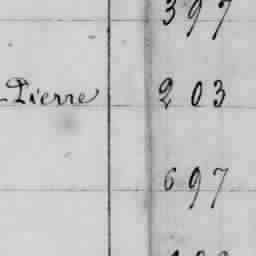 397
Pierre 203
697